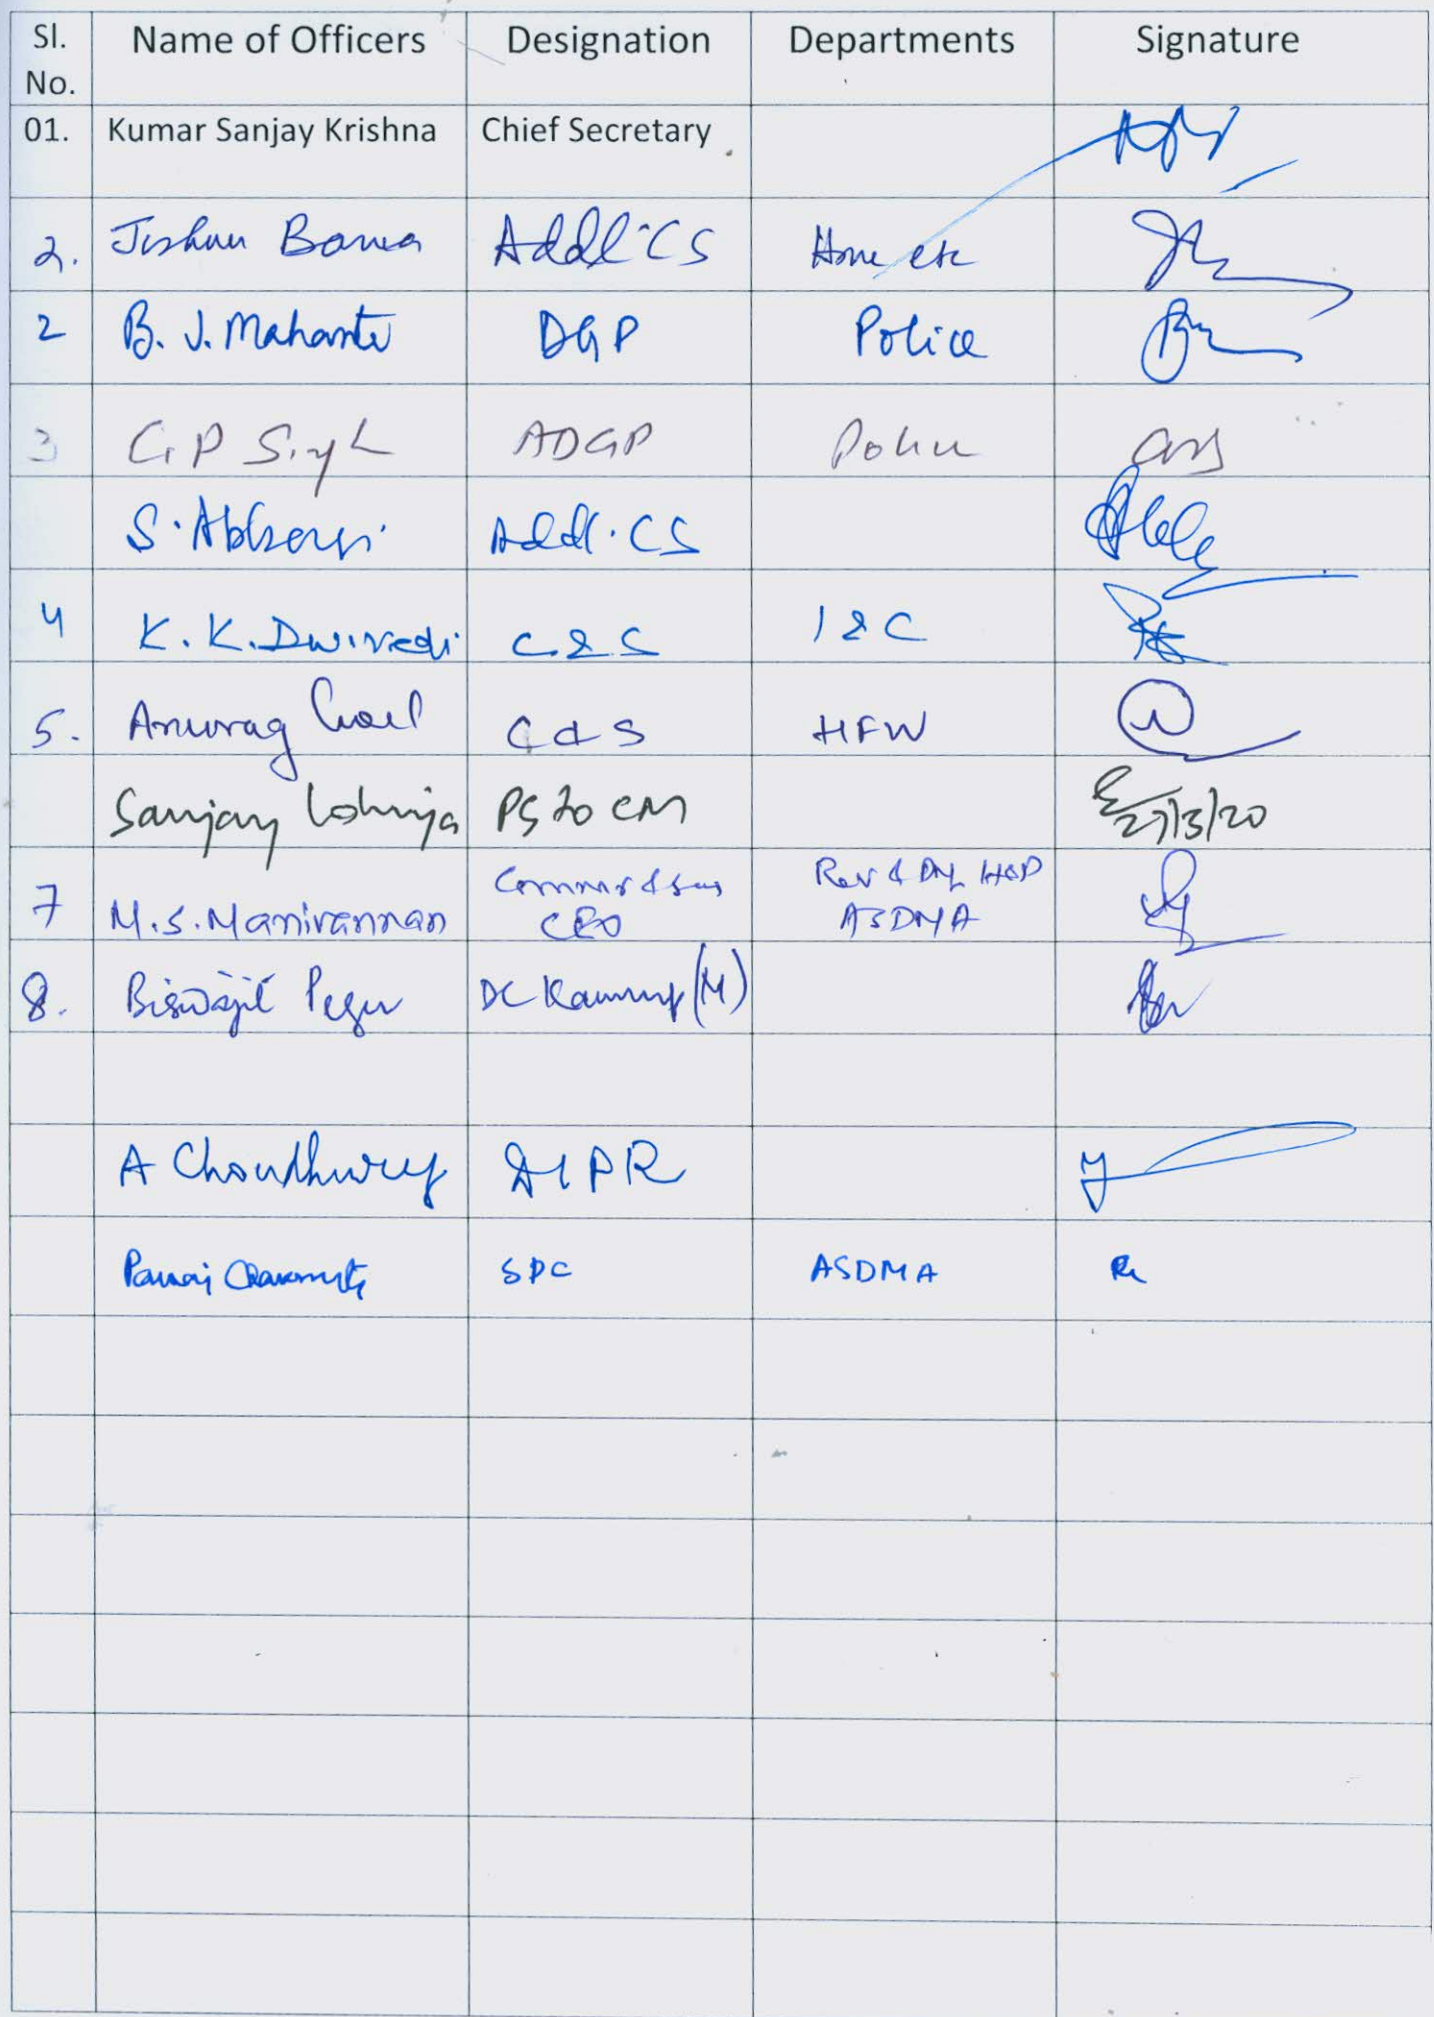 Sl. No. Name of Officers Designation Departments Signature
01. Kumar Sanjay Krishna Chief Secretary
2. Jishnu Barua Addl. CS Home etc
2 B. J. Mahanta DGP Police
3 G P Singh ADGP Police
S. Abbasi Addl. CS
4 K. K. Dwivedi C & S I & C
5. Anurag Goel C & S HFW
Sanjay Lohiya PS to CM 27/3/20
7 M.S. Manivannan CEO Rev & DM ASDMA
8. Biswajit Pegu DC Kamrup (M)
A Choudhury DIPR
Pankaj Chakravarty SPC ASDMA